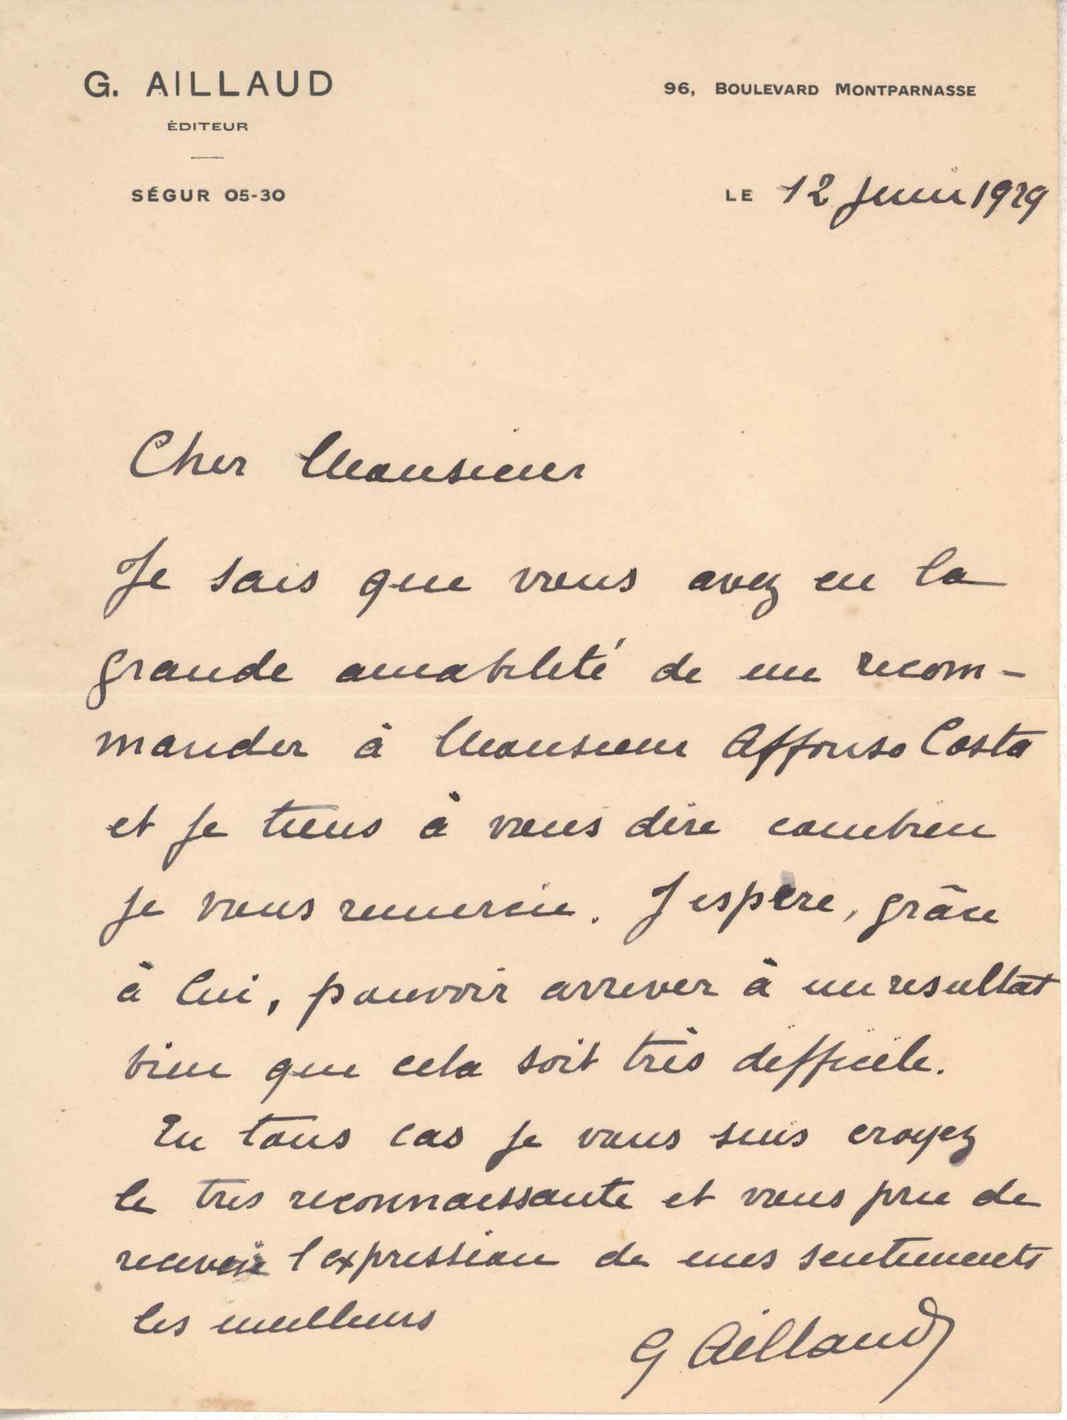 G. AILLAUD
ÉDITEUR
SÉGUR 05-30
96, BOULEVARD MONTPARNASSE
LE 12 Juin 1929
Cher Monsieur
Je sais que vous avez eu la
grande amabilité de me recom-
mander à Monsieur Affonso Costa
et je tiens à vous dire combien
je vous remercie. J espère, grâce
à lui, pouvoir arriver à un resultat
bien que cela soit très difficile.
En tous cas je vous suis croyez
le tres reconnaissante et vous prie de
recevoir l expression de mes sentiments
les meilleurs
G Aillaud